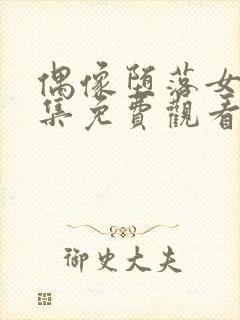 偶像堕落女
集免費觀看
御史大夫